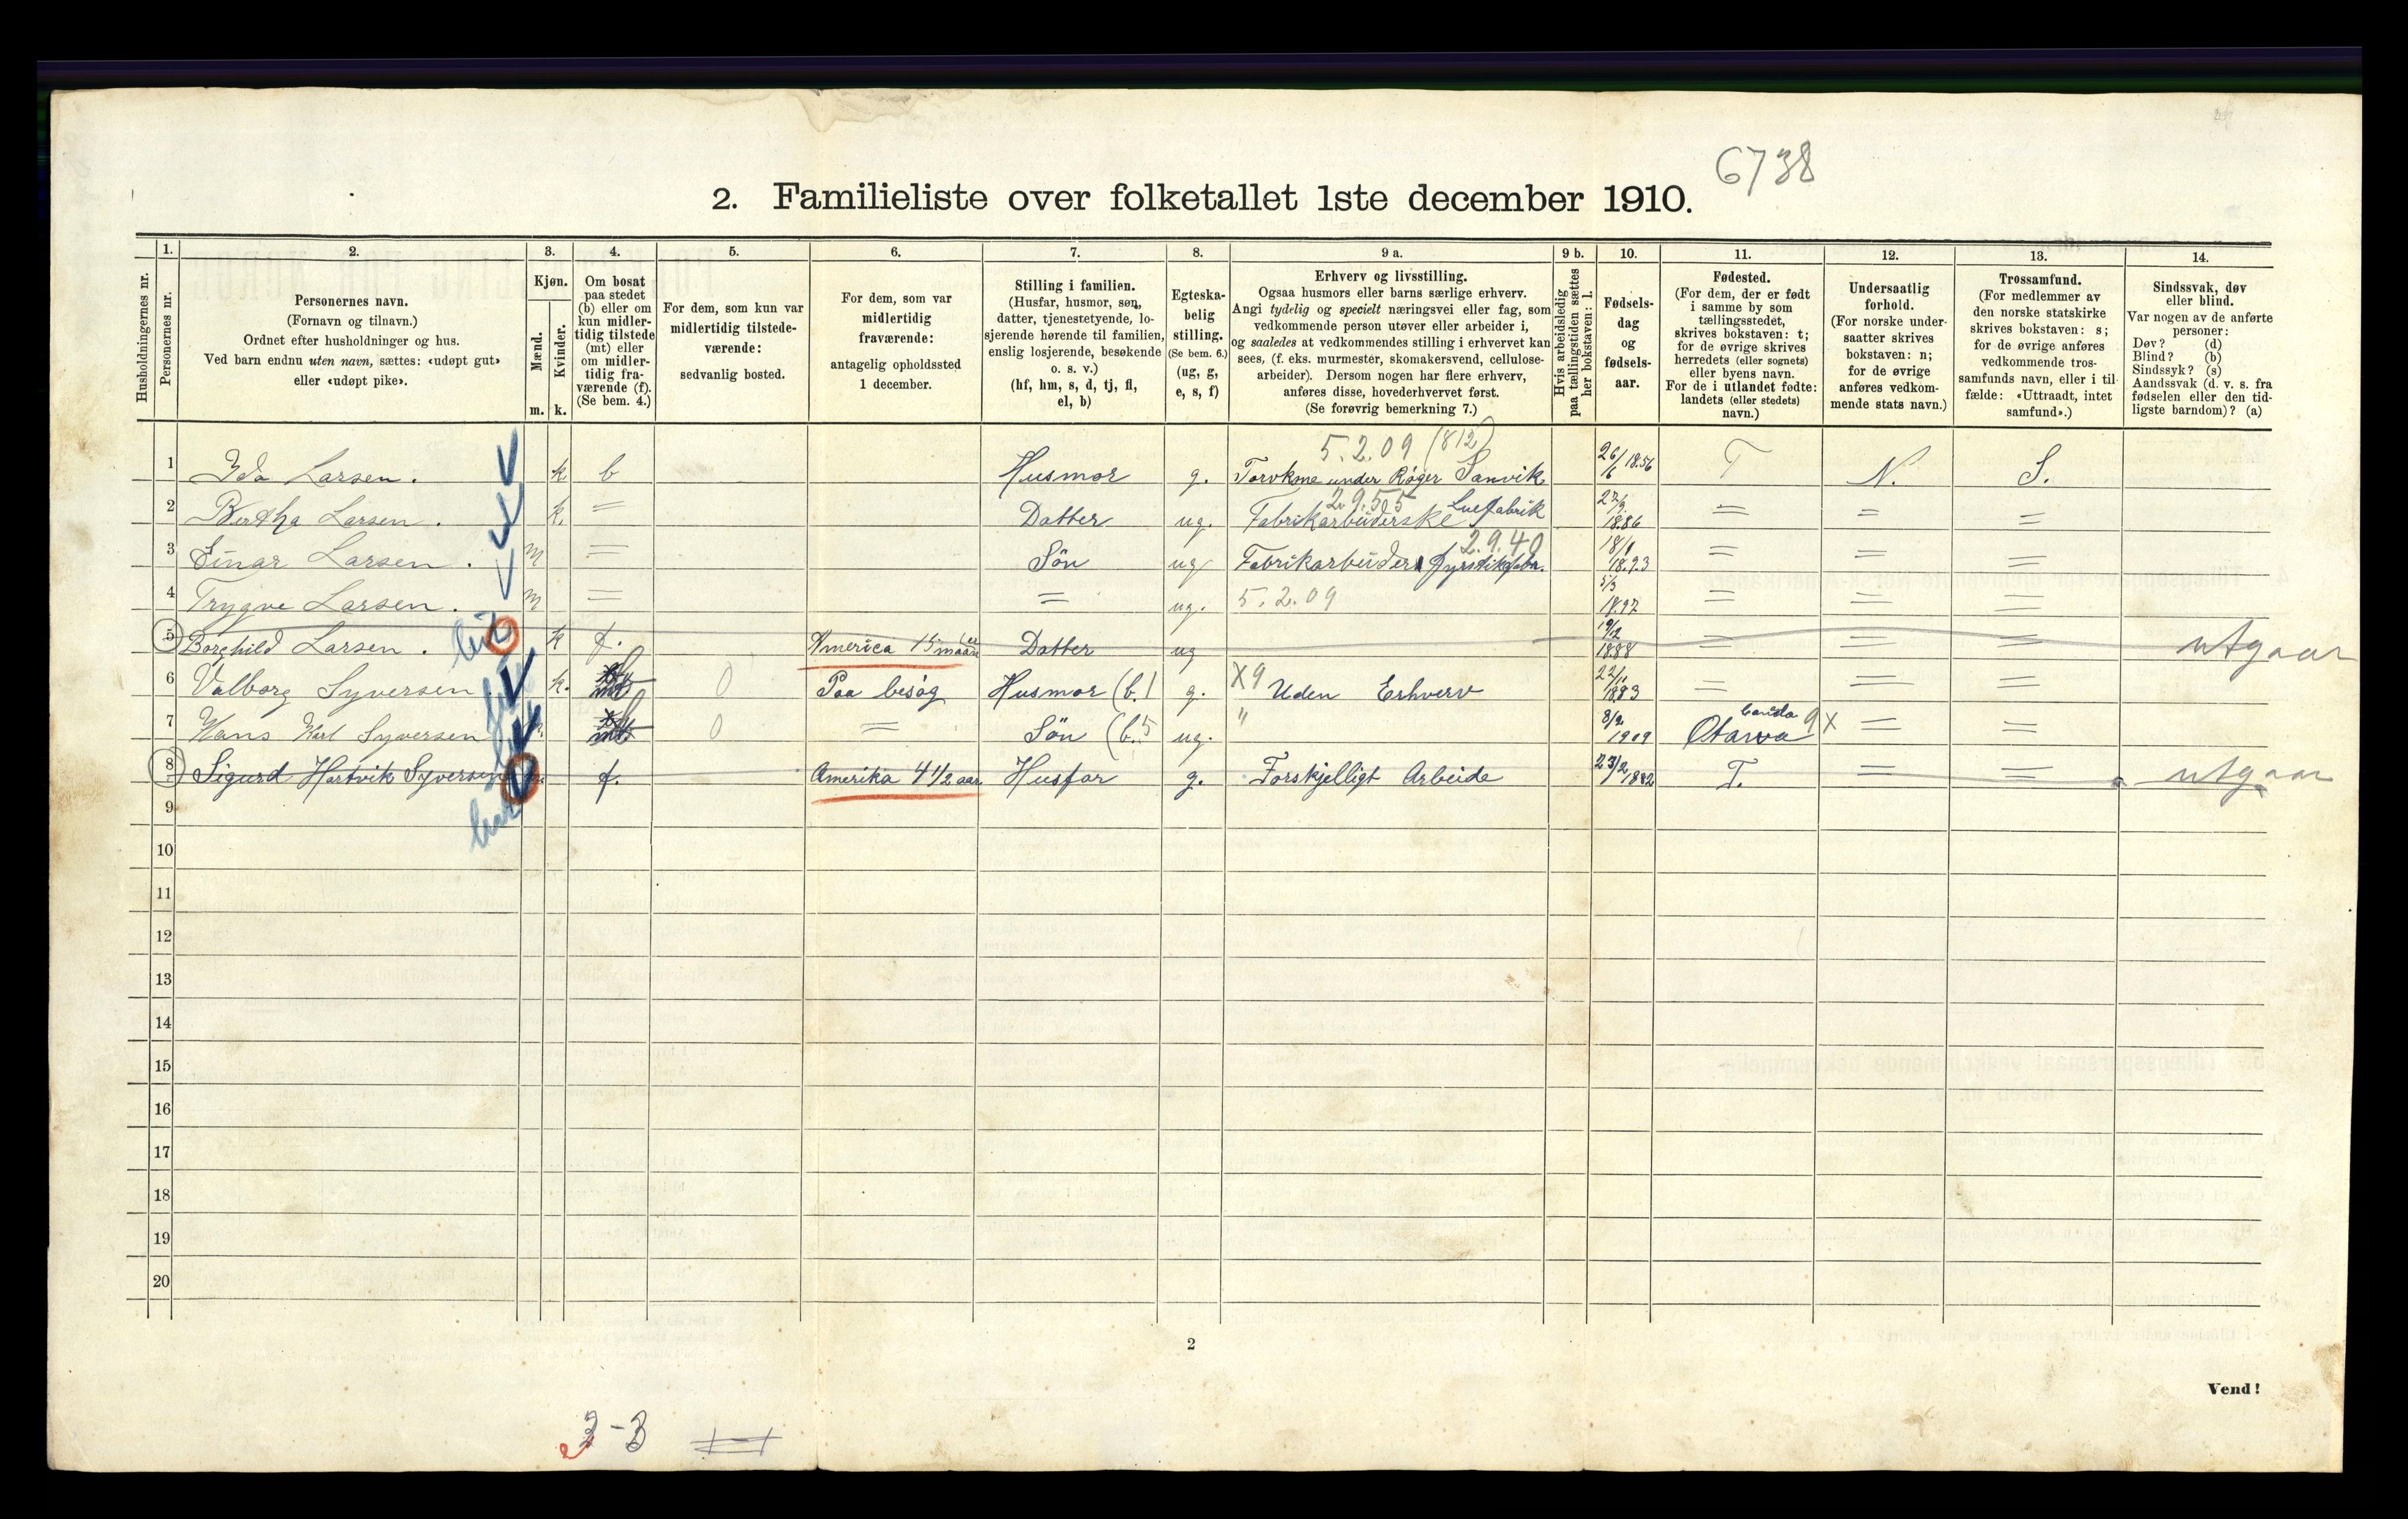 6738
2. Familieliste over folketallet 1ste december 1910.
Husholdningernes nr.
1.
Personernes nr.
2.
Personernes navn.
(Fornavn og tilnavn.)
Ordnet efter husholdninger og hus.
Ved barn endnu uten navn, sættes: «udøpt gut»
eller «udøpt pike».
3.
Kjøn.
Mænd.
Kvinder.
m. k.
4.
Om bosat
paa stedet
(b) eller om
kun midler-
tidig tilstede
(mt) eller
om midler-
tidig fra-
værende (f).
(Se bem. 4.)
5.
For dem, som kun var
midlertidig tilstede-
værende:
sedvanlig bosted.
6.
For dem, som var
midlertidig
fraværende:
antagelig opholdssted
1 december.
7.
Stilling i familien.
(Husfar, husmor, søn,
datter, tjenestetyende, lo-
sjerende hørende til familien,
enslig losjerende, besøkende
o. s. v.)
(hf, hm, s, d, tj, fl,
el, b)
8.
Egteska-
belig
stilling.
(Se bem. 6.)
(ug, g,
e, s, f)
9 a.
Erhverv og livsstilling.
Ogsaa husmors eller barns særlige erhverv.
Angi tydelig og specielt næringsvei eller fag, som
vedkommende person utøver eller arbeider i,
og saaledes at vedkommendes stilling i erhvervet kan
sees, (f. eks. murmester, skomakersvend, cellulose-
arbeider). Dersom nogen har flere erhverv,
anføres disse, hovederhvervet først.
(Se forøvrig bemerkning 7.)
9 b.
Hvis arbeidsledig
paa tællingstiden sættes
her bokstaven: l.
10.
Fødsels-
dag
og
fødsels-
aar.
11.
Fødested.
(For dem, der er født
i samme by som
tællingsstedet,
skrives bokstaven: t;
for de øvrige skrives
herredets (eller sognets)
eller byens navn.
For de i utlandet fødte:
landets (eller stedets)
navn.)
12.
Undersaatlig
forhold.
(For norske under-
saatter skrives
bokstaven: n;
for de øvrige
anføres vedkom-
mende stats navn.)
13.
Trossamfund.
(For medlemmer av
den norske statskirke
skrives bokstaven: s;
for de øvrige anføres
vedkommende tros-
samfunds navn, eller i til-
fælde: «Uttraadt, intet
samfund».)
14.
Sindssvak, døv
eller blind.
Var nogen av de anførte
personer:
Døv? (d)
Blind? (b)
Sindssyk? (s)
Aandssvak (d. v. s. fra
fødselen eller den tid-
ligste barndom)? (a)
5.2.09 (812)
1 Ida Larsen. k b Husmor g. Torvkone under Røger Sanvik 26/6 1856 T N. S.
2.9.55
2 Bertha Larsen. k. = Datter ug. Fabrikarbeiderske Luefabrik 27/9 1886 = = =
2.9.40
3 Einar Larsen. m = Søn ug Fabrikarbeider Fyrstikfabr. 18/1 1893 = = =
4 Trygve Larsen. m = = ug. 5.2.09 5/3 1897 = = =
5 Borghild Larsen. k f. America 15 maan Datter ug 19/2 1888 = = = utgaar
6 Valborg Syversen k. mt 0 Paa besøg Husmor (b.) g. X9 Uden Erhverv 22/11 1883 = = =
7 Hans Karl Syversen mt 0 = Søn (b.5 ug. " 8/2 1909 Otawa 9X = =
8 Sigurd Hartvik Syversen m. f. Amerika 4 1/2 aar Husfar g. Forskjelligt Arbeide 23/2 1882 T. = = utgaar
9
10
11
12
13
14
15
16
17
18
19
20
2
Vend!
3-3